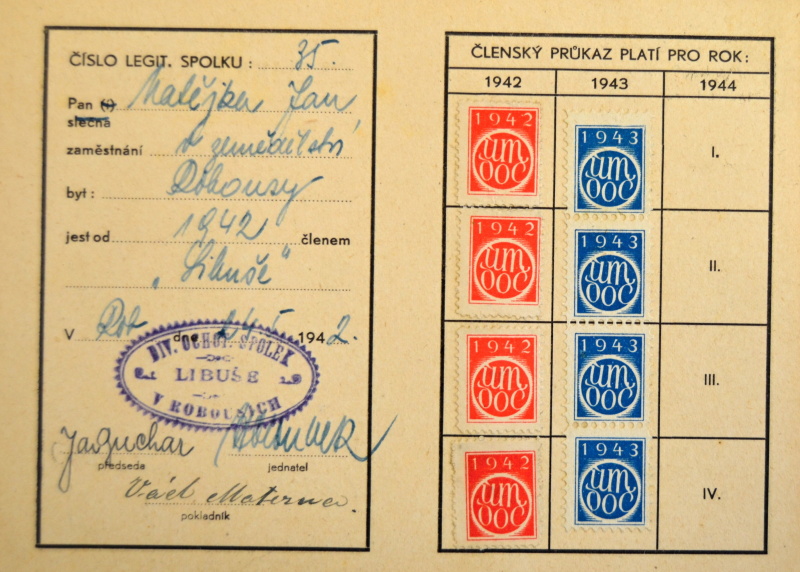 ČÍSLO LEGIT. SPOLKU : 35.
Pan (í) Matějka Jan
slečna
zaměstnání v zemědělství
byt : Robousy
jest od 1942 členem
„Libuše“
V Rob dne 24 5 1942.
DIV. OCHOT. SPOLEK
LIBUŠE
V ROBOUSÍCH
předseda jednatel
Václ. Materna
pokladník
ČLENSKÝ PRŮKAZ PLATÍ PRO ROK :
1942 1943 1944
1942 um ooc 1943 um ooc I.
1942 um ooc 1943 um ooc II.
1942 um ooc 1943 um ooc III.
1942 um ooc 1943 um ooc IV.